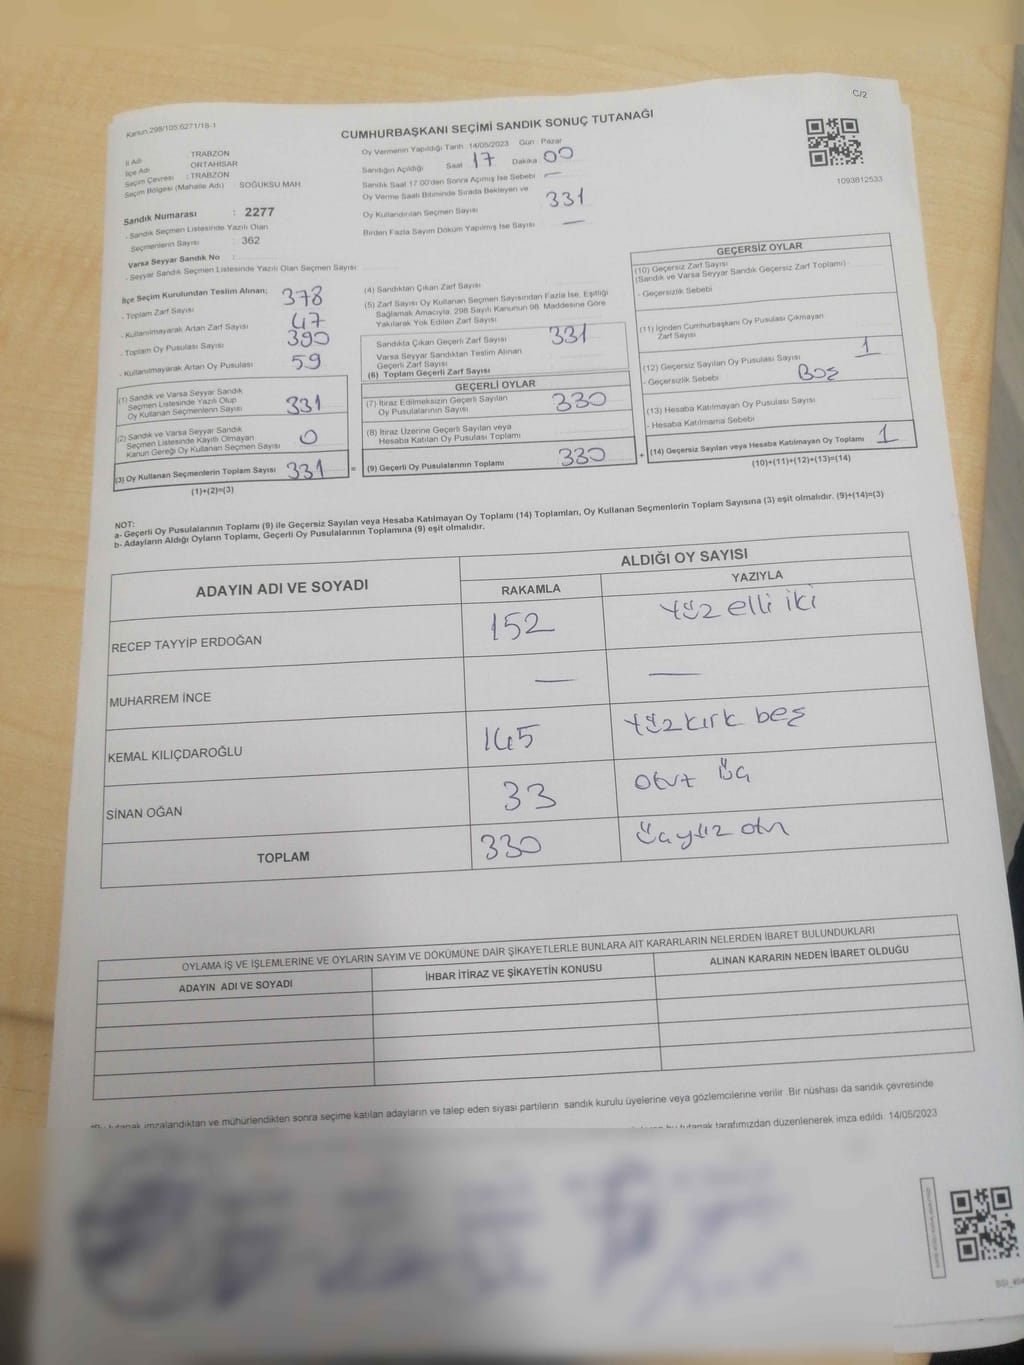 C/2
Kanun:298/105:6271/18-1
CUMHURBAŞKANI SEÇİMİ SANDIK SONUÇ TUTANAĞI
1093812533
İl Adı : TRABZON
İlçe Adı : ORTAHİSAR
Seçim Çevresi : TRABZON
Seçim Bölgesi (Mahalle Adı) : SOĞUKSU MAH.
Sandık Numarası : 2277
- Sandık Seçmen Listesinde Yazılı Olan
Seçmenlerin Sayısı : 362
Varsa Seyyar Sandık No :
- Seyyar Sandık Seçmen Listesinde Yazılı Olan Seçmen Sayısı
Oy Vermenin Yapıldığı Tarih 14/05/2023 Gün Pazar
Sandığın Açıldığı Saat 17 Dakika 00
Sandık Saat 17:00'den Sonra Açılmış İse Sebebi —
Oy Verme Saati Bitiminde Sırada Bekleyen ve
Oy Kullandırılan Seçmen Sayısı 331
Birden Fazla Sayım Döküm Yapılmış İse Sayısı —
İlçe Seçim Kurulundan Teslim Alınan;
- Toplam Zarf Sayısı 378
- Kullanılmayarak Artan Zarf Sayısı 47
- Toplam Oy Pusulası Sayısı 390
- Kullanılmayarak Artan Oy Pusulası 59
(1) Sandık ve Varsa Seyyar Sandık
Seçmen Listesinde Yazılı Olup
Oy Kullanan Seçmenlerin Sayısı 331
(2) Sandık ve Varsa Seyyar Sandık
Seçmen Listesinde Kayıtlı Olmayan
Kanun Gereği Oy Kullanan Seçmen Sayısı 0
(3) Oy Kullanan Seçmenlerin Toplam Sayısı 331 =
(1)+(2)=(3)
(4) Sandıktan Çıkan Zarf Sayısı
(5) Zarf Sayısı Oy Kullanan Seçmen Sayısından Fazla İse, Eşitliği
Sağlamak Amacıyla, 298 Sayılı Kanunun 98. Maddesine Göre
Yakılarak Yok Edilen Zarf Sayısı
Sandıkta Çıkan Geçerli Zarf Sayısı 331
Varsa Seyyar Sandıktan Teslim Alınan
Geçerli Zarf Sayısı
(6) Toplam Geçerli Zarf Sayısı
GEÇERLİ OYLAR
(7) İtiraz Edilmeksizin Geçerli Sayılan
Oy Pusulalarının Sayısı 330
(8) İtiraz Üzerine Geçerli Sayılan veya
Hesaba Katılan Oy Pusulası Toplamı
(9) Geçerli Oy Pusulalarının Toplamı 330 +
GEÇERSİZ OYLAR
(10) Geçersiz Zarf Sayısı
(Sandık ve Varsa Seyyar Sandık Geçersiz Zarf Toplamı)
- Geçersizlik Sebebi
(11) İçinden Cumhurbaşkanı Oy Pusulası Çıkmayan
Zarf Sayısı
(12) Geçersiz Sayılan Oy Pusulası Sayısı 1
- Geçersizlik Sebebi Boş
(13) Hesaba Katılmayan Oy Pusulası Sayısı
- Hesaba Katılmama Sebebi
(14) Geçersiz Sayılan veya Hesaba Katılmayan Oy Toplamı 1
(10)+(11)+(12)+(13)=(14)
NOT:
a- Geçerli Oy Pusulalarının Toplamı (9) ile Geçersiz Sayılan veya Hesaba Katılmayan Oy Toplamı (14) Toplamları, Oy Kullanan Seçmenlerin Toplam Sayısına (3) eşit olmalıdır. (9)+(14)=(3)
b- Adayların Aldığı Oyların Toplamı, Geçerli Oy Pusulalarının Toplamına (9) eşit olmalıdır.
ADAYIN ADI VE SOYADI ALDIĞI OY SAYISI
RAKAMLA YAZIYLA
RECEP TAYYİP ERDOĞAN 152 Yüz elli iki
MUHARREM İNCE — —
KEMAL KILIÇDAROĞLU 145 Yüzkırk beş
SİNAN OĞAN 33 otuz üç
TOPLAM 330 üçyüz otuz
OYLAMA İŞ VE İŞLEMLERİNE VE OYLARIN SAYIM VE DÖKÜMÜNE DAİR ŞİKAYETLERLE BUNLARA AİT KARARLARIN NELERDEN İBARET BULUNDUKLARI
ADAYIN ADI VE SOYADI İHBAR İTİRAZ VE ŞİKAYETİN KONUSU ALINAN KARARIN NEDEN İBARET OLDUĞU
tutanak imzalandıktan ve mühürlendikten sonra seçime katılan adayların ve talep eden siyasi partilerin sandık kurulu üyelerine veya gözlemcilerine verilir. Bir nüshası da sandık çevresinde
bu tutanak tarafımızdan düzenlenerek imza edildi. 14/05/2023